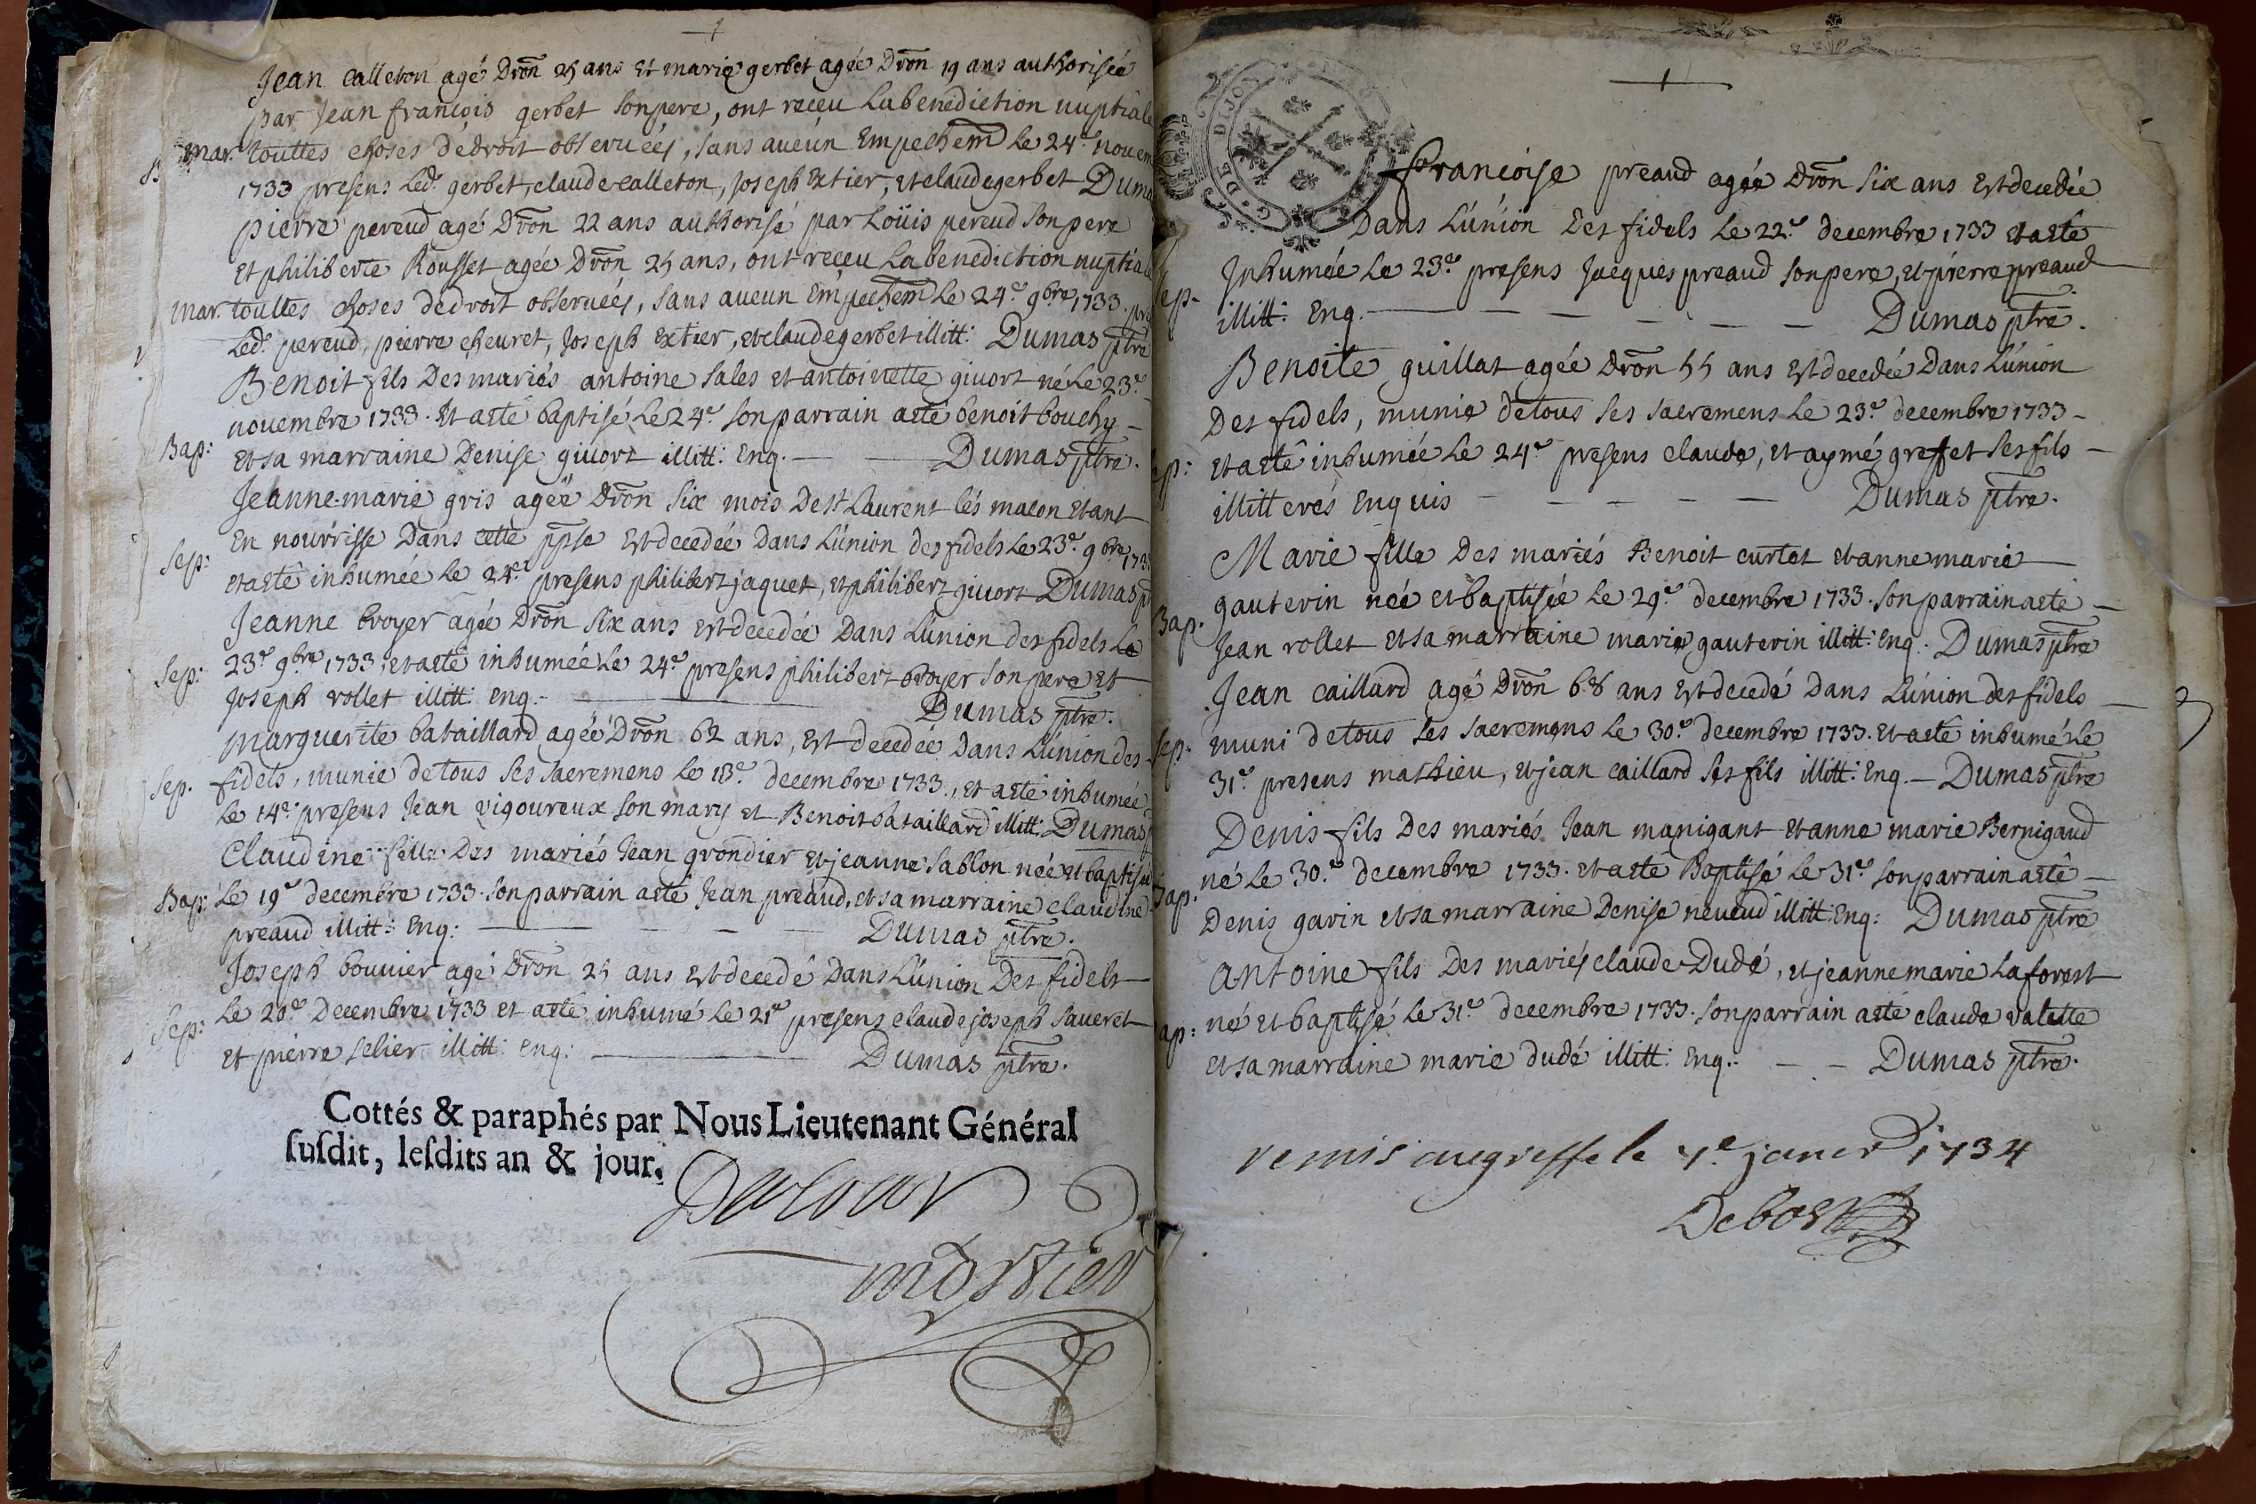 Jean Calleton agé Dron 25 ans Et marie gerbet agée Dron 19 ans authorisée
par Jean françois gerbet son pere, ont receu La benediction nuptiale
mar. touttes choses de droit obseruées, sans aucun Empechem Le 24e nouem
1733 presens Led. gerbet, claude calleton, Joseph Extier, et claude gerbet Duma
pierre pereud agé Dron 22 ans authorisé par Loüis pereud son pere
Et philiberte Rousset agée Dron 25 ans, ont receu La benediction nuptiale
mar. touttes choses de droit obseruées, sans aucun Empechem Le 24e 9bre 1733. pre
Led. pereud, pierre cheuret, Joseph Extier, et claude gerbet illitt: Dumas ptre
Benoit fils Des mariés antoine sales et antoinette giuort né Le 23e
nouembre 1733. Et a esté baptisé Le 24e son parrain a esté benoit bouchy
Bap: Et sa marraine Denise giuort illitt: Enq. Dumas ptre.
Jeanne-marie gris agée Dron Six mois De st Laurent lés macon Etant
En nourrisse Dans cette ppsse Est decedée Dans L'union des fidels Le 23e 9bre 1733
Sep: et a esté inhumée Le 24e presens philibert jaquet, et philibert giuort Dumas
Jeanne broyer agée Dron Six ans est decedée Dans L'union des fidels Le
Sep: 23e 9bre 1733. et a esté inhumée Le 24e presens philibert broyer son pere Et
Joseph rollet illitt: Enq. Dumas ptre.
Marguerite bataillard agée Dron 62 ans, Est decedée Dans L'union des
Sep. fidels, munie de tous ses sacremens Le 13e decembre 1733., et a esté inhumée
Le 14e presens Jean vigoureux son mary et Benoit bataillard illitt: Dumas
Claudine fille Des mariés Jean grondier et jeanne sablon née et baptisée
Bap: Le 19e decembre 1733. son parrain a esté Jean preaud, et sa marraine claudine
preaud illitt: Enq: Dumas ptre.
Joseph bouuier agé Dron 25 ans est decedé Dans L'union Des fidels
Sep: Le 20e Decembre 1733 et a esté inhumé Le 21e presens claude joseph saueret
et pierre selier illitt: Enq: Dumas ptre.
Cottés & paraphés par Nous Lieutenant Général
susdit, lesdits an & jour.
G. DE DIJON
françoise preaud agée Dron Six ans Est decedée
Dans L'union Des fidels Le 22e decembre 1733 et a esté
Inhumée Le 23e presens Jacques preaud son pere, et pierre preaud
illitt: Enq. Dumas ptre.
Benoite guillat agée Dron 55 ans Est decedée Dans L'union
Des fidels, munie de tous ses sacremens Le 23e decembre 1733
et a esté inhumée Le 24e presens claude, et aymé greffet ses fils
illitteres Enquis Dumas ptre.
Marie fille Des mariés Benoit curtet et anne marie
Bap. gauterin née et baptisée Le 29e decembre 1733. son parrain a esté
Jean rollet et sa marraine marie gauterin illitt: Enq. Dumas ptre
Jean caillard agé Dron 68 ans Est decedé Dans L'union des fidels
Sep. muni de tous ses sacremens Le 30e decembre 1733. et a esté inhumé Le
31e presens mathieu, et jean caillard ses fils illitt: Enq. Dumas ptre
Denis fils Des mariés Jean manigant et anne marie Bernigaud
Bap. né Le 30e decembre 1733. et a esté Baptisé Le 31e son parrain a esté
Denis gavin et sa marraine Denise neueud illitt: Enq: Dumas ptre
Antoine fils Des mariés claude Dudé, et jeanne marie Laforest
ap: né et baptisé Le 31e decembre 1733. son parrain a esté claude valette
et sa marraine marie dudé illitt: Enq: Dumas ptre.
remis au greffe le 7e janer 1734
Debost